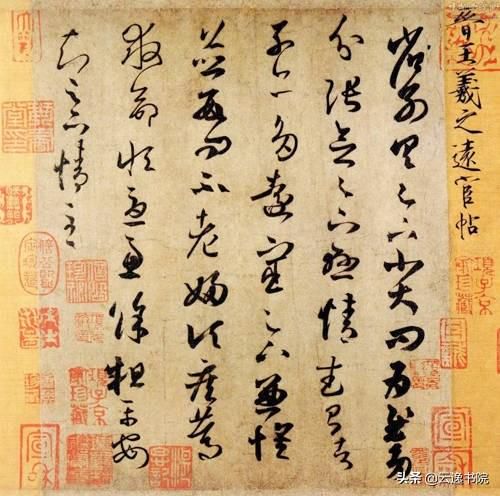 晉王羲之遠宦帖
省別具足下小大問為慰多
分張念足下懸情武昌諸
子亦多遠宦足下兼懷
並數問不老婦頃疾篤
救命恒憂慮餘粗平安
知足下情至
項子京家珍藏
头条 @云逸书院